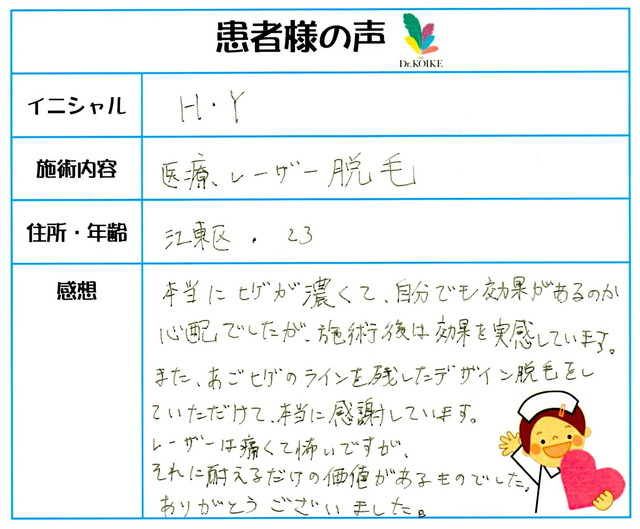 患者様の声
Dr.KOIKE
イニシャル H・Y
施術内容 医療レーザー脱毛
住所・年齢 江東区・23
感想 本当にヒゲが濃くて、自分でも効果があるのか
心配でしたが、施術後は効果を実感しています。
また、あごヒゲのラインを残したデザイン脱毛をし
ていただけて、本当に感謝しています。
レーザーは痛くて怖いですが、
それに耐えるだけの価値があるものでした。
ありがとうございました。